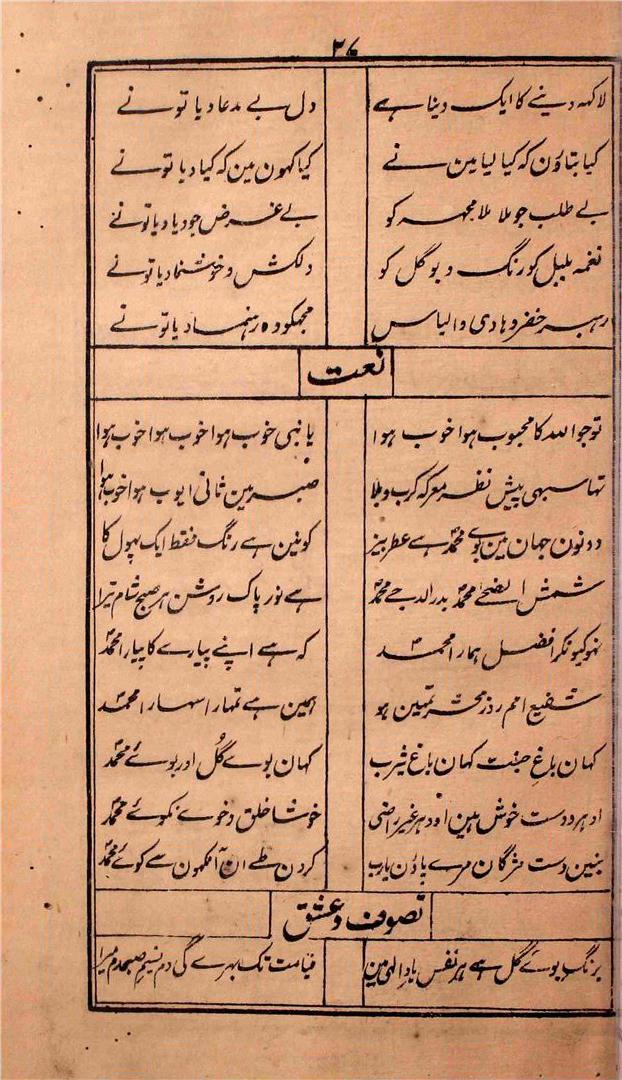 ۲۷
لاکہہ دینے کا ایک دینا ہے دل بے مدعا دیا تو نے
کیا بتاؤن کہ کیا لیا مین نے کیا کہون مین کہ کیا دیا تو نے
بے طلب جو ملا ملا مجہہ کو بے غرض جو دیا دیا تو نے
نغمہ بلبل کو رنگ و بو گل کو دلکش و خوشنما دیا تو نے
رہبر خضر و ہادی و الیاس مجہکو وہ رہنما دیا تو نے
نعت
تو جو اللہ کا محبوب ہوا خوب ہوا یا نبی خوب ہوا خوب ہوا خوب ہوا
تہا سبہی پیش نظر معرکہ کرب و بلا صبر مین ثانی ایوب ہوا خوب ہوا
دونون جہان مین بوے محمدؐ ہے عطر بیز کونین ہے رنگ فقط ایک پہول کا
شمش الضحےٰ محمدؐ بدر الدجے محمدؐ ہے نور پاک روشن ہر صبح شام تیرا
نہو کیونکر افضل ہمارا محمدؐ کہ ہے اپنے پیارے کا پیارا محمدؐ
شفیع امم روز محشر تمہین ہو ہمین ہے تمہارا سہارا محمدؐ
کہان باغِ جنت کہان باغ یثرب کہان بوے گُل اور بوئے محمدؐ
ادہر دوست خوش ہین اودہر غیر راضی خوشا خلق و خوے نکوئے محمدؐ
بنین دست مژگان مرے پاؤن یارب کردن طے ان آنکہون سے کوئے محمدؐ
تصوف و عشق
برنگِ بوئے گل ہے ہر نفس یاد الہی مین قیامت تک بہرے گی دم نسیم صبحدم میرا